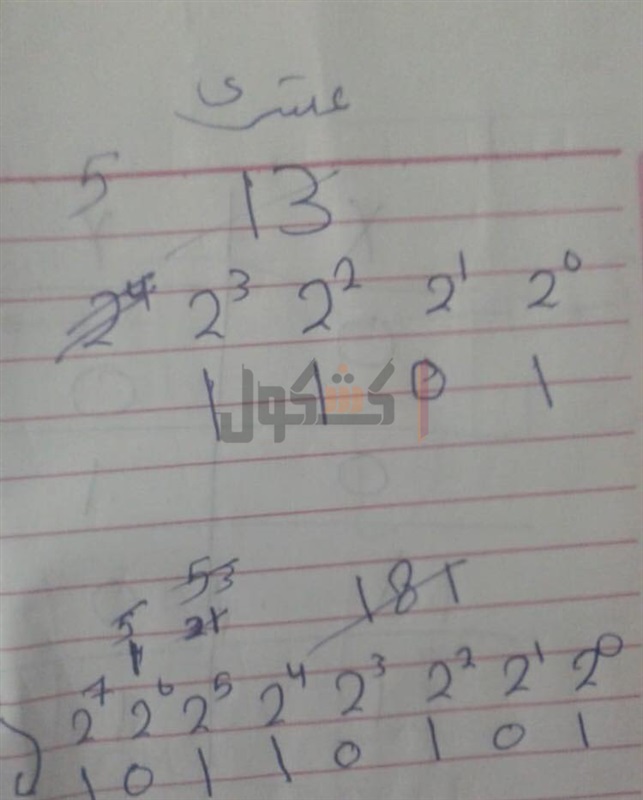 عشرى
5 13
2⁴ 2³ 2² 2¹ 2⁰
1 1 0 1
كشكول
53 181
5 21
2⁷ 2⁶ 2⁵ 2⁴ 2³ 2² 2¹ 2⁰
1 0 1 1 0 1 0 1